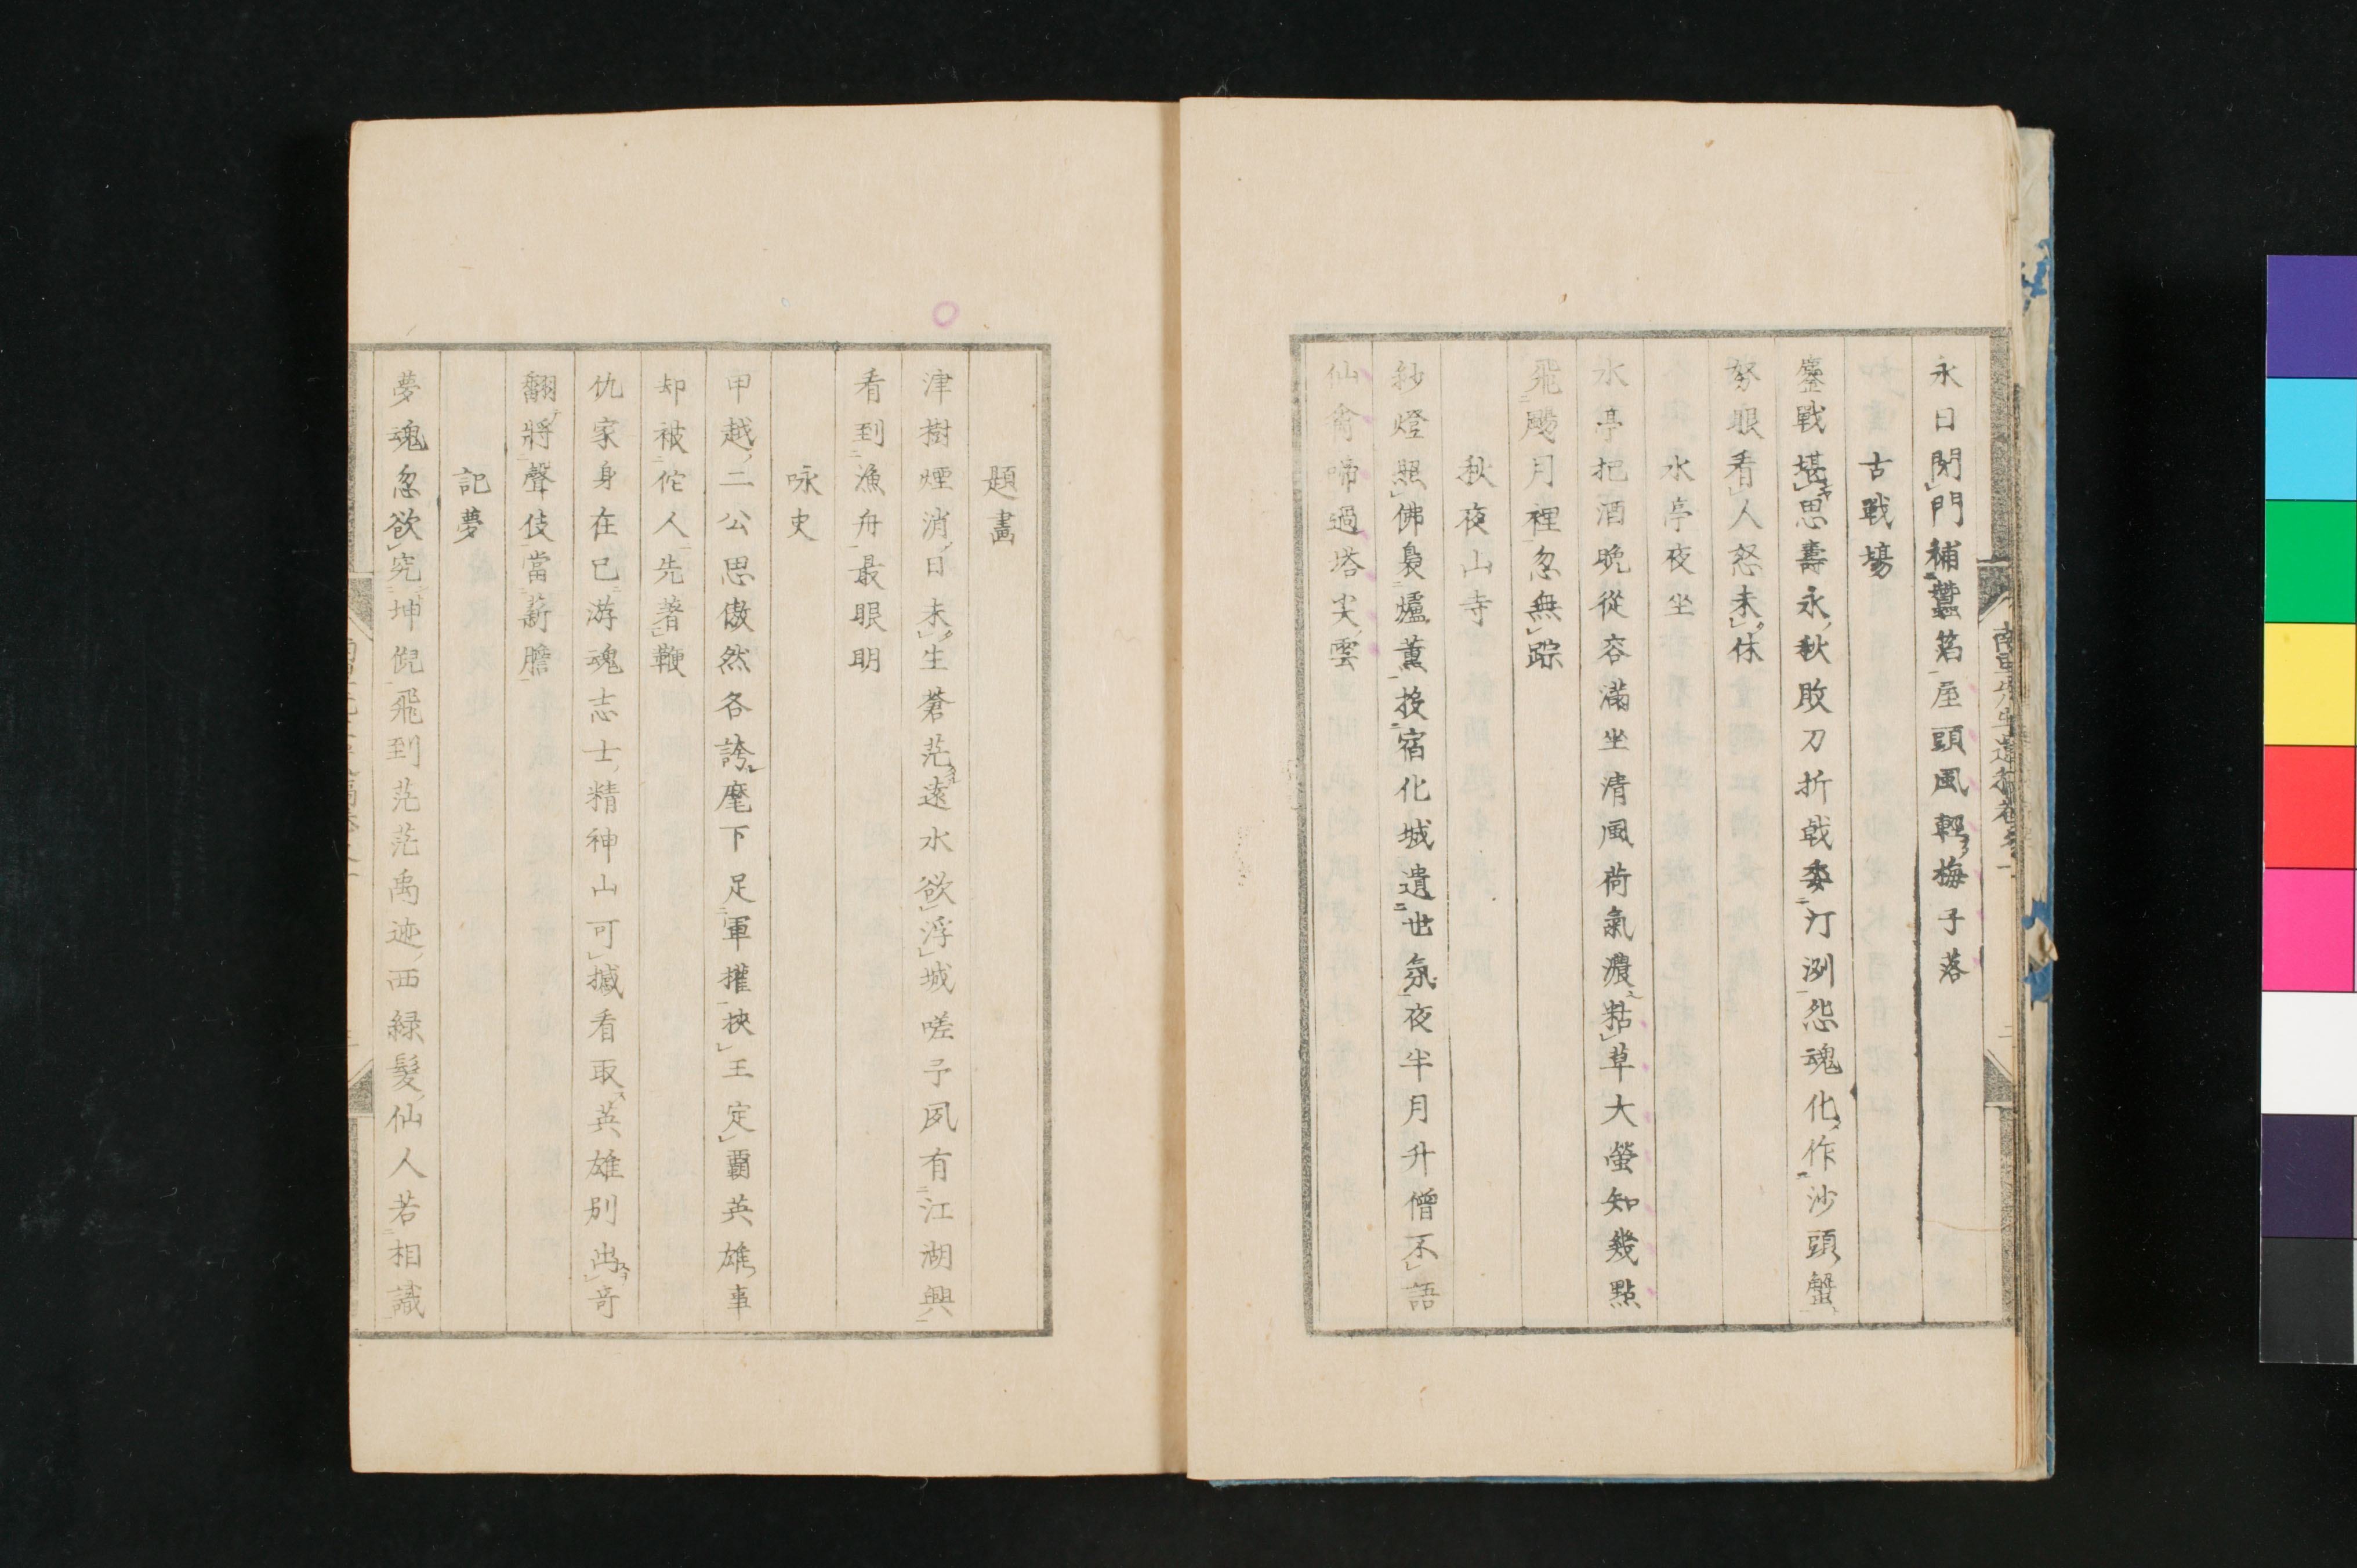 永日閉門補蠶箔屋頭風輕梅子落
古戰場
鏖戰堪思壽永秋敗刀折戟委汀洲怨魂化作沙頭蟹
努眼看人怒未休
水亭夜坐
水亭把酒晚從容滿坐清風荷氣濃粘草大螢知幾點
飛颺月裡忽無踪
秋夜山寺
紗燈照佛裊爐薰投宿化城遺世氛夜半月升僧不語
仙禽啼過塔尖雲
題畫
津樹煙消日未生蒼茫遠水欲浮城嗟予夙有江湖興
看到漁舟最眼明
咏史
甲越二公思傲然各誇麾下足軍權挾王定霸英雄事
却被佗人先著鞭
仇家身在已游魂志士精神山可撼看取英雄別出奇
翻將聲伎當薪膽
記夢
夢魂忽欲究坤倪飛到茫茫禹迹西緑髮仙人若相識